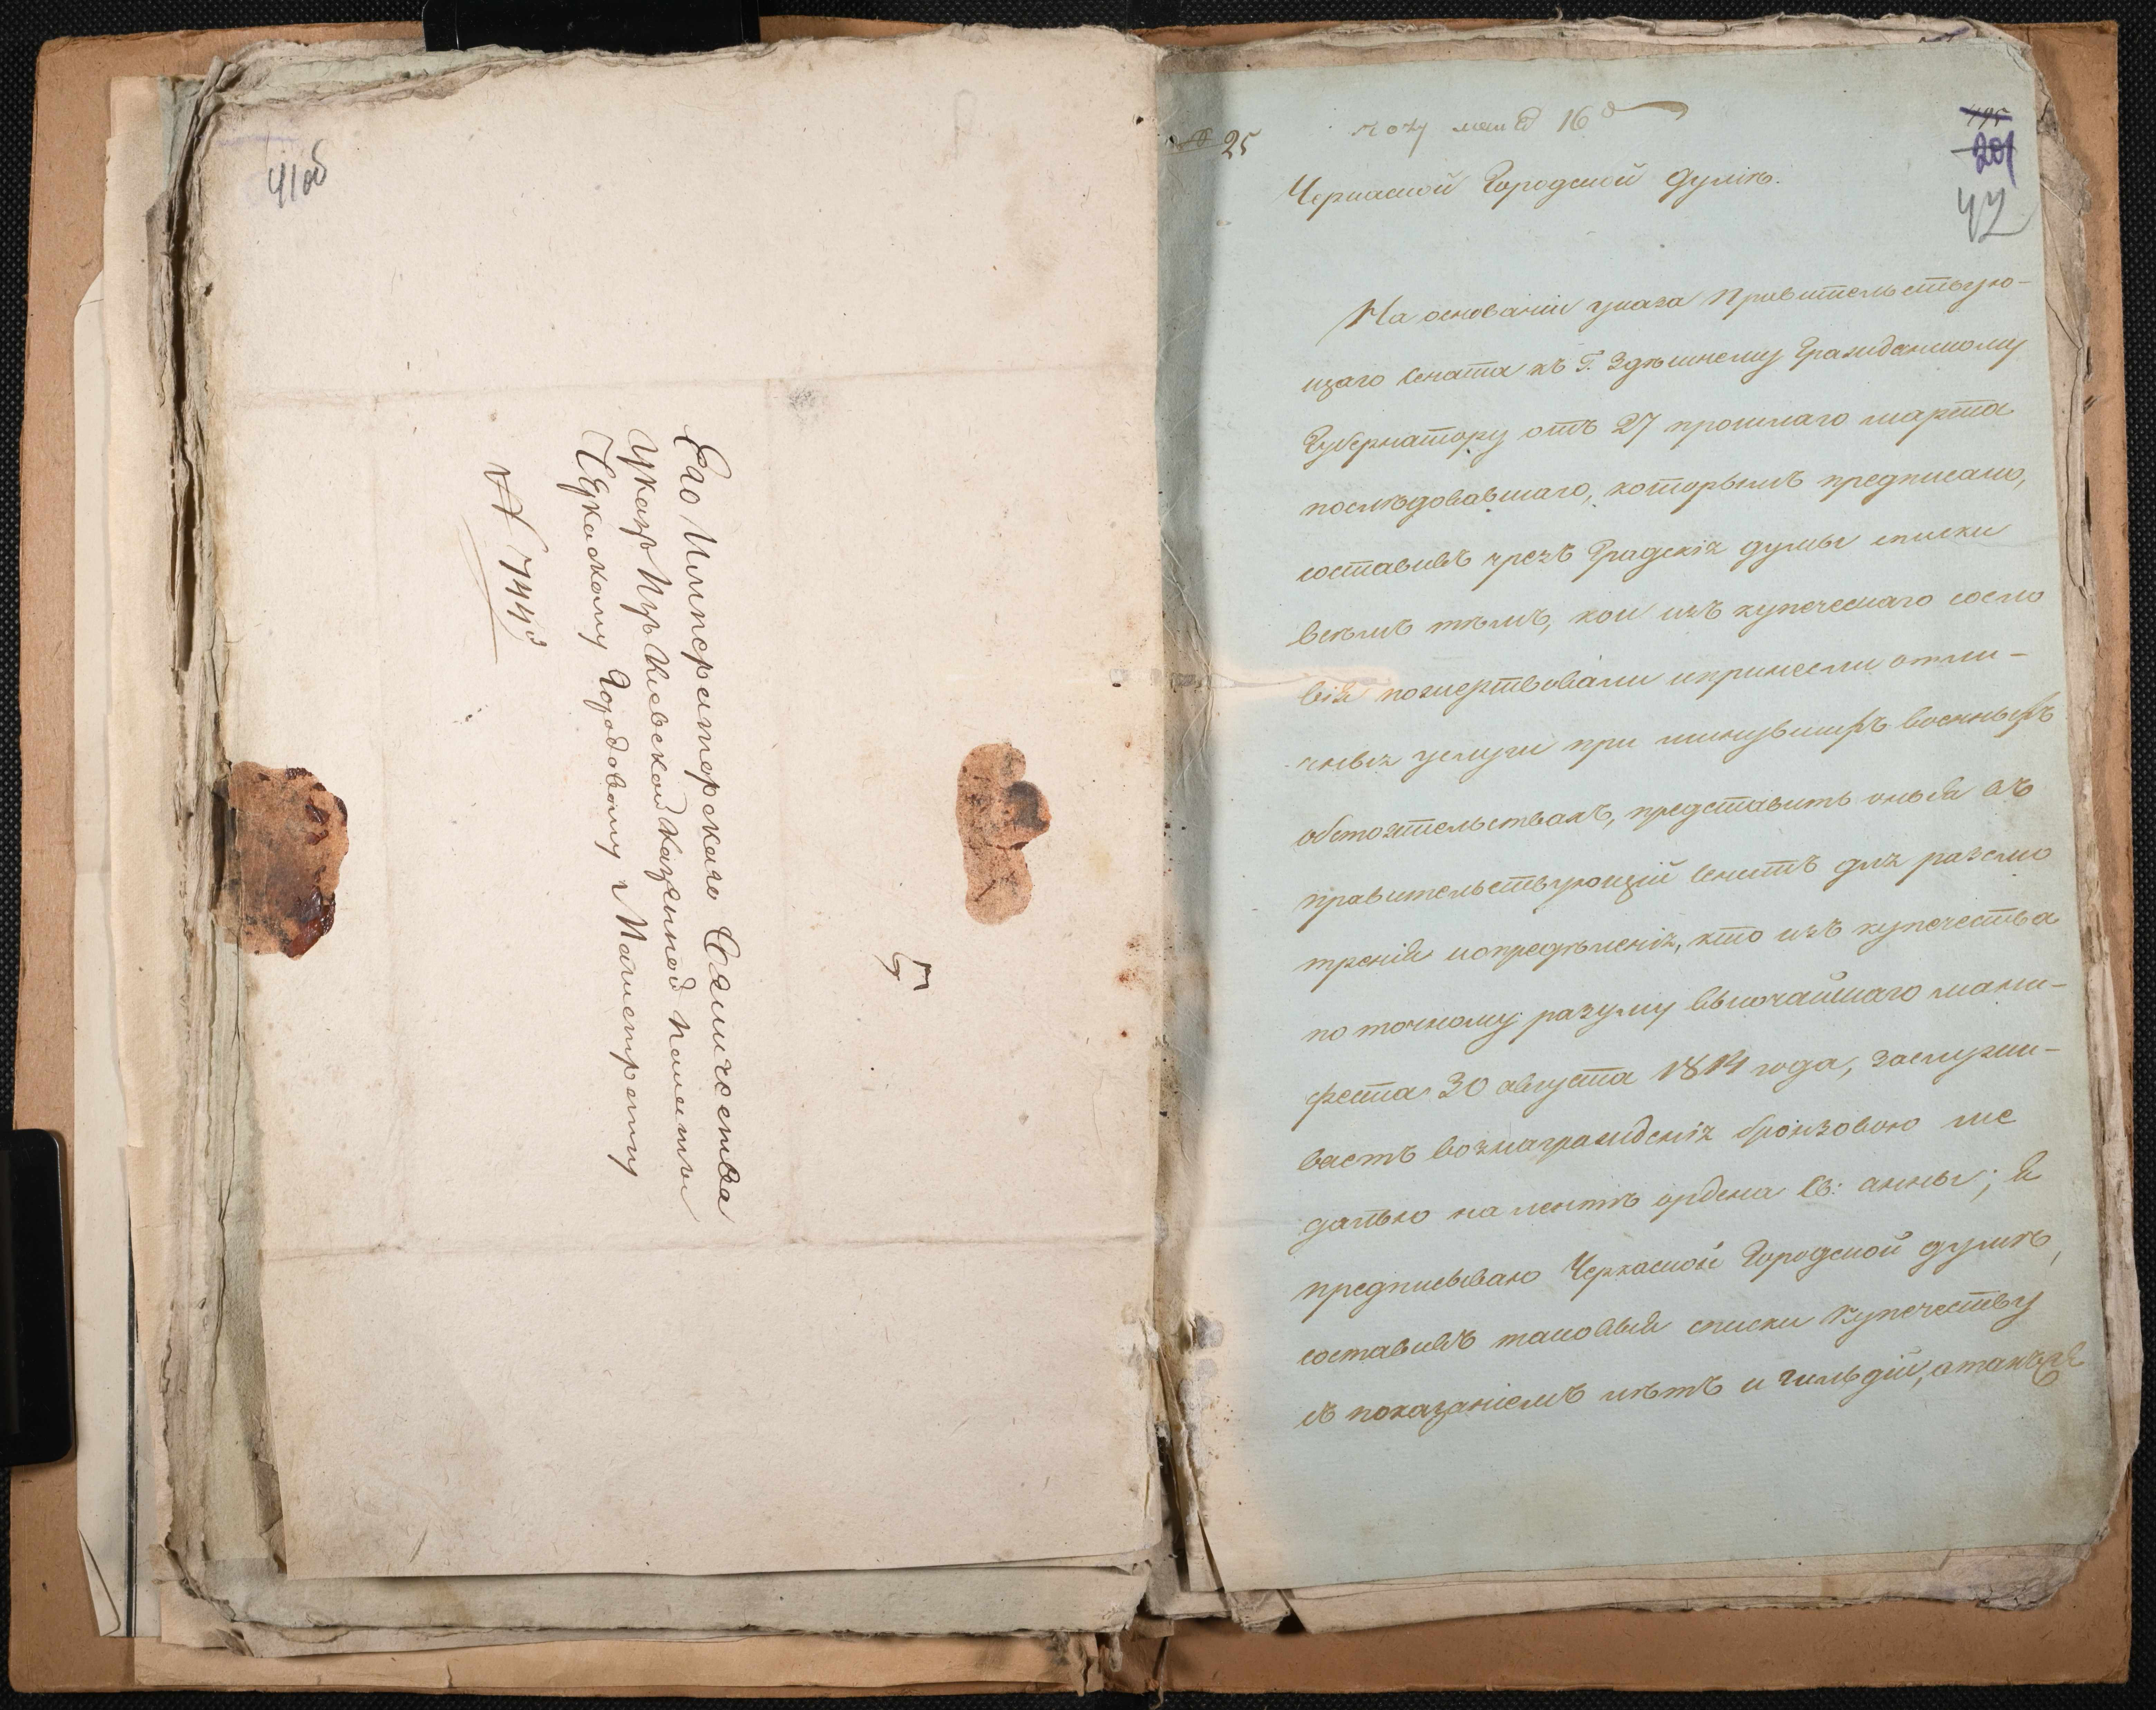 41об
Его Императорскаго Величества
Указъ Изъ Киевской Казенной палаты
Черкаскому Городовому Магистрату
№ 7443
5
№ 25
16
195
201
42
Черкаской Городской Думѣ.
На основаніи указа Правительствую-
щаго Сената къ Г. Здѣшнему Гражданскому
Губернатору отъ 27 прошлаго марта
послѣдовавшаго, которымъ предписано,
составивъ чрезъ Градскія думы списки
всѣмъ тѣмъ, кои изъ купеческаго сосло
вія пожертвовали и принесли отли-
чныя услуги при минувшихъ военныхъ
обстоятельствахъ, представить оныя въ
правительствующій Сенатъ для разсмо
трѣнія и опредѣленія, кто изъ купечества
по точному разуму высочайшаго мани-
феста 30 августа 1814 года, заслужи-
ваетъ вознагражденія бронзовою ме
далью на лентѣ ордена Св: анны; я
предписываю Черкаской Городской думѣ,
составивъ таковыя списки Купечеству
съ показаніемъ лѣтъ и гильдій, а такъже